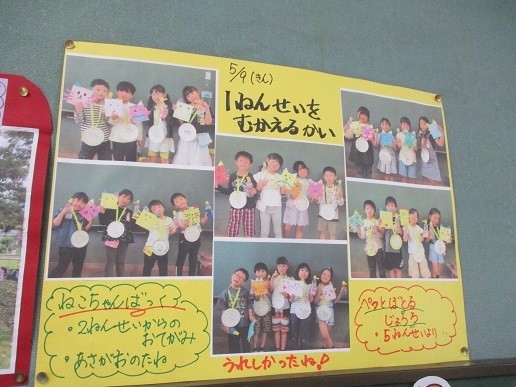 5/9(きん)
1ねんせいを
むかえるかい
ねこちゃんばっぐ
・2ねんせいからの
おてがみ
・あさがおのたね
うれしかったね!
ペットぼとる
じょうろ
・5ねんせいより…